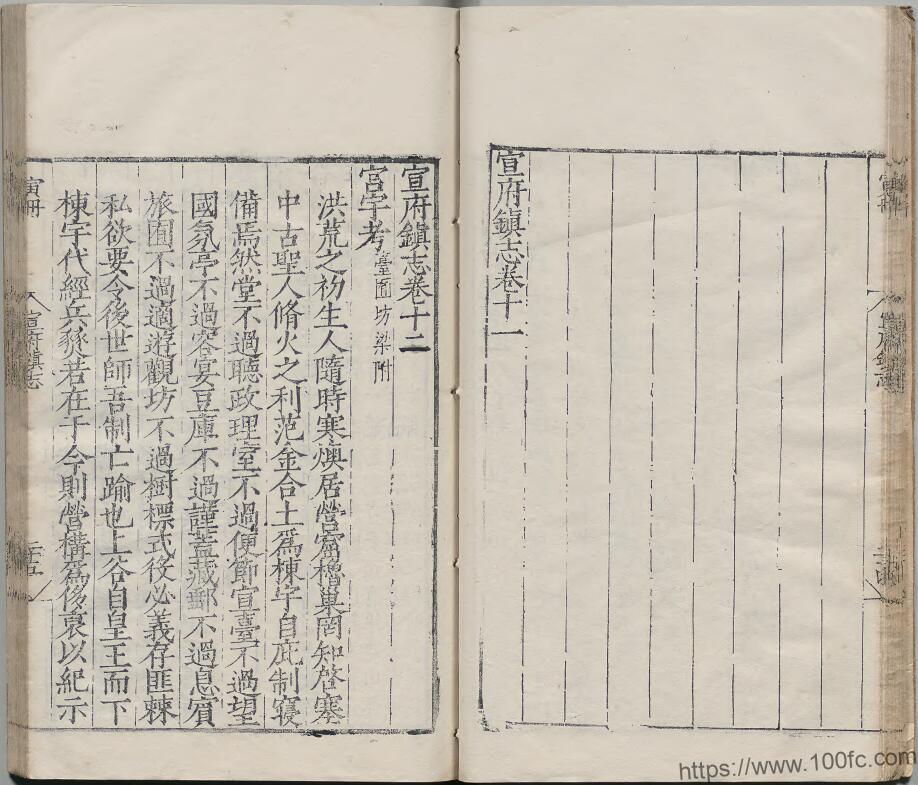 宣府鎮志卷十一
宣府鎮志卷十二
宮宇考臺囿坊梁附
洪荒之初生人隨時寒燠居營窟橧巢罔知啓塞
中古聖人脩火之利范金合土爲棟宇自庇制寖
備焉然堂不過聽政理室不過便節宣臺不過望
國氛亭不過容宴豆庫不過謹蓋藏郵不過息賓
旅囿不過適遊觀坊不過樹標式役必義存匪棘
私欲要令後世師吾制亡踰也上谷自皇王而下
棟宇代經兵燹若在于今則營構爲侈裒以紀示
寅冊
宣府鎮志
二十五
https://www.100fc.com